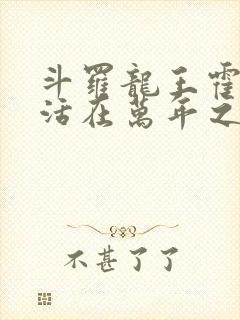 斗羅龍王霍
活在萬年之
不甚了了